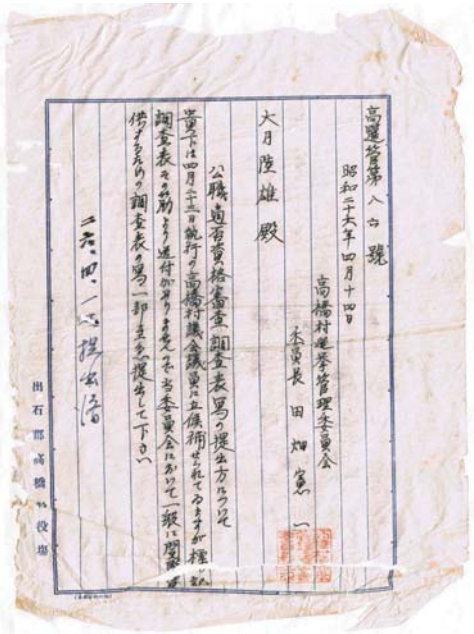 高選管第八六號
昭和二十六年四月十四日
高橋村選挙管理委員会
委員長 田畑憲一
大月陸雄殿
公職適否資格審査調査表写の提出方について
貴下は四月二十三日執行の高橋村議会議員に立候補せられてゐますが標記
調査表その筋より送付がありませんので当委員会において一般に閲覧に
供するための調査表の写一部至急提出して下さい
二六、四、一 提出済
出石郡高橋村役場